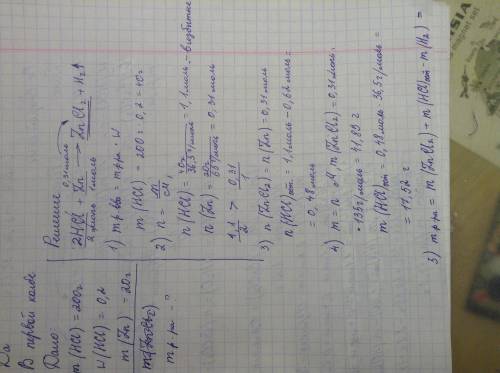 Да
В первой колбе
Дано:
m(HCl) = 200г
w(HCl) = 0,2
m(Zn) - 20г
m(ZnCl₂)
m р-ра - ?
Решение
0,31моль
2HCl + Zn → ZnCl₂ + H₂↑
2 моль 1 моль
1) m р.вва = m р-ра · w
m(HCl) = 200г · 0,2 = 40г
2) n = m/M
n(HCl) = 40г / 36,5 г/моль = 1,1 моль - в избытке
n(Zn) = 20г / 65 г/моль = 0,31 моль
1,1/2 > 0,31/1
3) n(ZnCl₂) = n(Zn) = 0,31 моль
n(HCl)ост. = 1,1 моль - 0,62 моль =
= 0,48 моль
4) m = n · M, m(ZnCl₂) = 0,31 моль ·
· 135 г/моль = 41,85 г
m(HCl)ост = 0,48 моль · 36,5 г/моль =
= 17,52 г
5) m р-ра = m(ZnCl₂) + m(HCl)ост - m(H₂) =